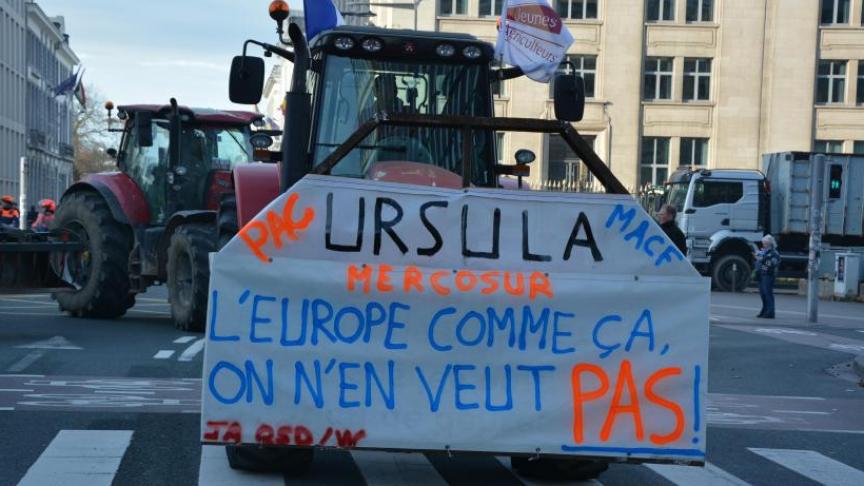 Jeunes
Agriculteurs
PAC URSULA MACF
MERCOSUR
L'EUROPE COMME ÇA,
ON N'EN VEUT PAS!
JA BSD/W